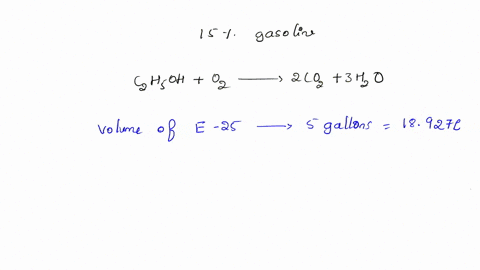 15% gasoline
C₂H₅OH + O₂ ⟶ 2CO₂ + 3H₂O
Volume of E-25 ⟶ 5 gallons = 18.927L